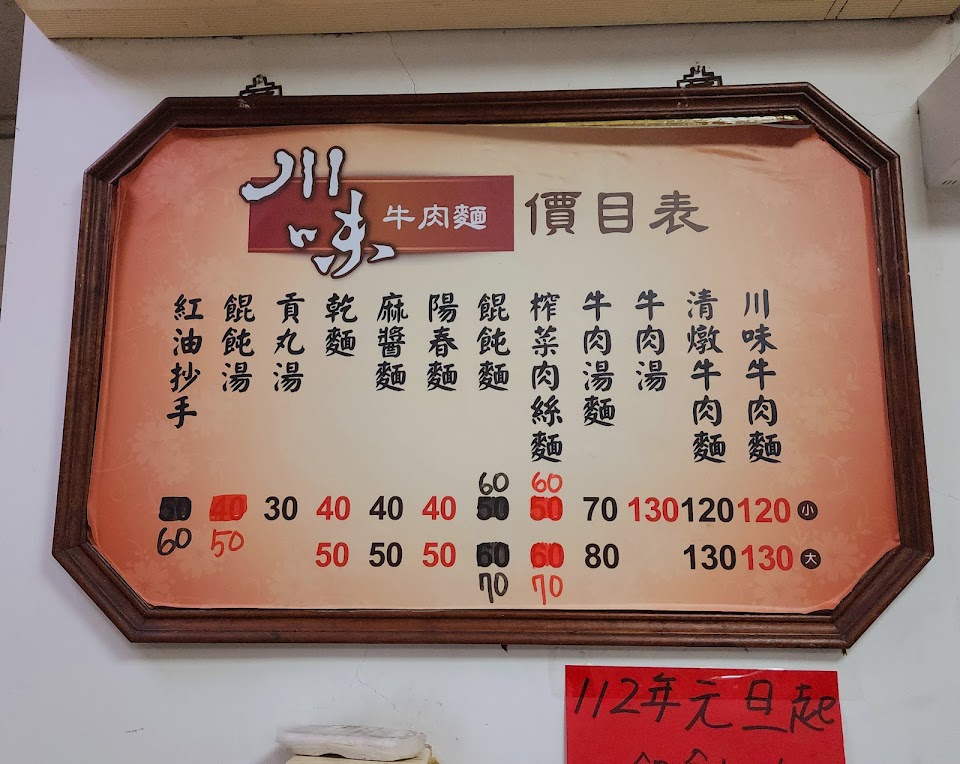 川味 牛肉麵 價目表
川味牛肉麵
清燉牛肉麵
牛肉湯
牛肉湯麵
榨菜肉絲麵
餛飩麵
陽春麵
麻醬麵
乾麵
貢丸湯
餛飩湯
紅油抄手
60 60
50 40 30 40 40 40 50 50 70 130 120 120 小
60 50 50 50 50 60 60 80 130 130 大
70 70
112年元旦起